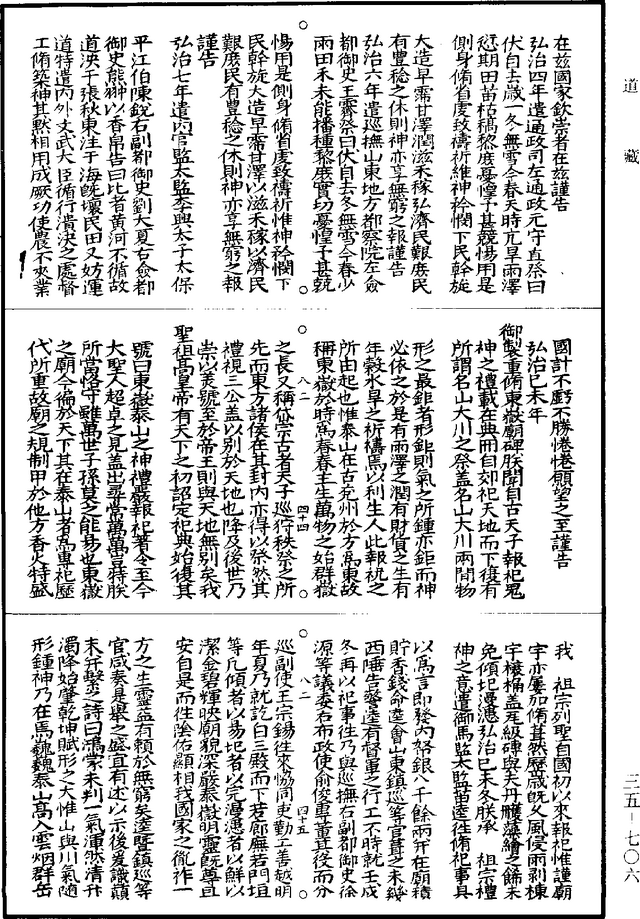 道藏
在兹國家欽崇者在兹謹告
弘治四年遣通政司左通政元守直祭曰
伏自去歲一冬無雪今春天時亢旱雨澤
愆期田苗枯槁黎庶憂惶予甚兢惕用是
側身脩省虔致禱祈維神矜憫下民幹旋
大造早霈甘澤潤滋禾稼弘濟民艱庶民
有豊稔之休則神亦享無窮之報謹告
弘治六年遣巡撫山東地方都察院左僉
都御史王霽祭曰伏自去冬無雪今春少
雨田禾未能播種黎庶實切憂惶予甚兢
惕用是側身脩省虔致禱祈惟神矜憫下
民幹旋大造早霈甘澤以滋禾稼以濟民
艱庶民有豊稔之休則神亦享無窮之報
謹告
弘治七年遣內官監太監李興太子太保
平江伯陳銳右副都御史劉大夏右僉都
御史熊翀以香帛告曰比者黄河不循故
道泱于張秋東注于海旣壞民田又妨運
道特遣內外文武大臣循行潰决之處督
工脩築神其黙相用成厥功使農不失業
國計不虧不勝惓惓願望之至謹告
弘治己未年
御製重脩東嶽廟碑朕聞自古天子報祀羣
神之禮載在典冊自郊祀天地而下復有
所謂名山大川之祭盖名山大川兩間物
形之最鉅者形鉅則氣之所鍾亦鉅而神
必依之於是有雨澤之潤有財貨之生有
年穀水旱之祈禱焉以利生人此報祀之
所由起也惟泰山在古兖州於方爲東故
稱東嶽於時爲春春主生萬物之始群嶽
之長又稱岱宗古者天子巡狩秩祭之所
先而東方諸侯在其封內亦得以祭然其
禮視三公盖以别於天地也降及後世乃
崇以美號至於帝王則與天地無別矣我
聖祖高皇帝有天下之初詔定祀典始復其
號曰東嶽泰山之神禮嚴報祀著令至今
大聖人超卓之見盖出尋常萬萬晋特朕
所當恪守雖萬世子孫莫之能易也東嶽
之廟今徧於天下其在泰山者爲專祀歷
代所重故廟之規制甲於他方香火特盛
八二
四十四
我　祖宗列聖自國初以來報祀惟謹廟
宇亦屢加脩葺然歷歲旣乆風侵雨剥棟
宇榱桷盖瓦級磚與夫丹雘藻繪之餙未
免傾圯漫漶弘治己未冬朕承　祖宗禮
神之意遣御馬監太監苗逵往脩祀事具
以寫言即發內帑銀八千餘兩幷在廟積
貯香錢命逵會山東鎮巡等官葺之未幾
西陲告警逵有督軍之行工不時就壬成
冬再以祀事往乃與巡撫右副都御史徐
源等議委右布政使俞俊專董其役而分
巡副使王宗錫往來恊同吏勤工善越明
年夏乃就訖曰三殿而下若廊無若門垣
等凢傾者以易圮者以完漫漶者以鮮以
潔金碧輝映廟貌深嚴泰嶽明靈旣尊且
安自是而徃隂佑顯相我國家之亂祚一
方之生靈益有頼於無窮矣逵暨鎮巡等
官咸奏是舉之盛宜有述以示後爰識顛
末幷繫之詩曰鴻䝉未判一氣渾然清升
濁降始肇乾坤賦形之大惟山與川氣随
形鍾神乃在焉巍巍泰山髙入雲烟群岳
八二
四十五
三五－七〇六